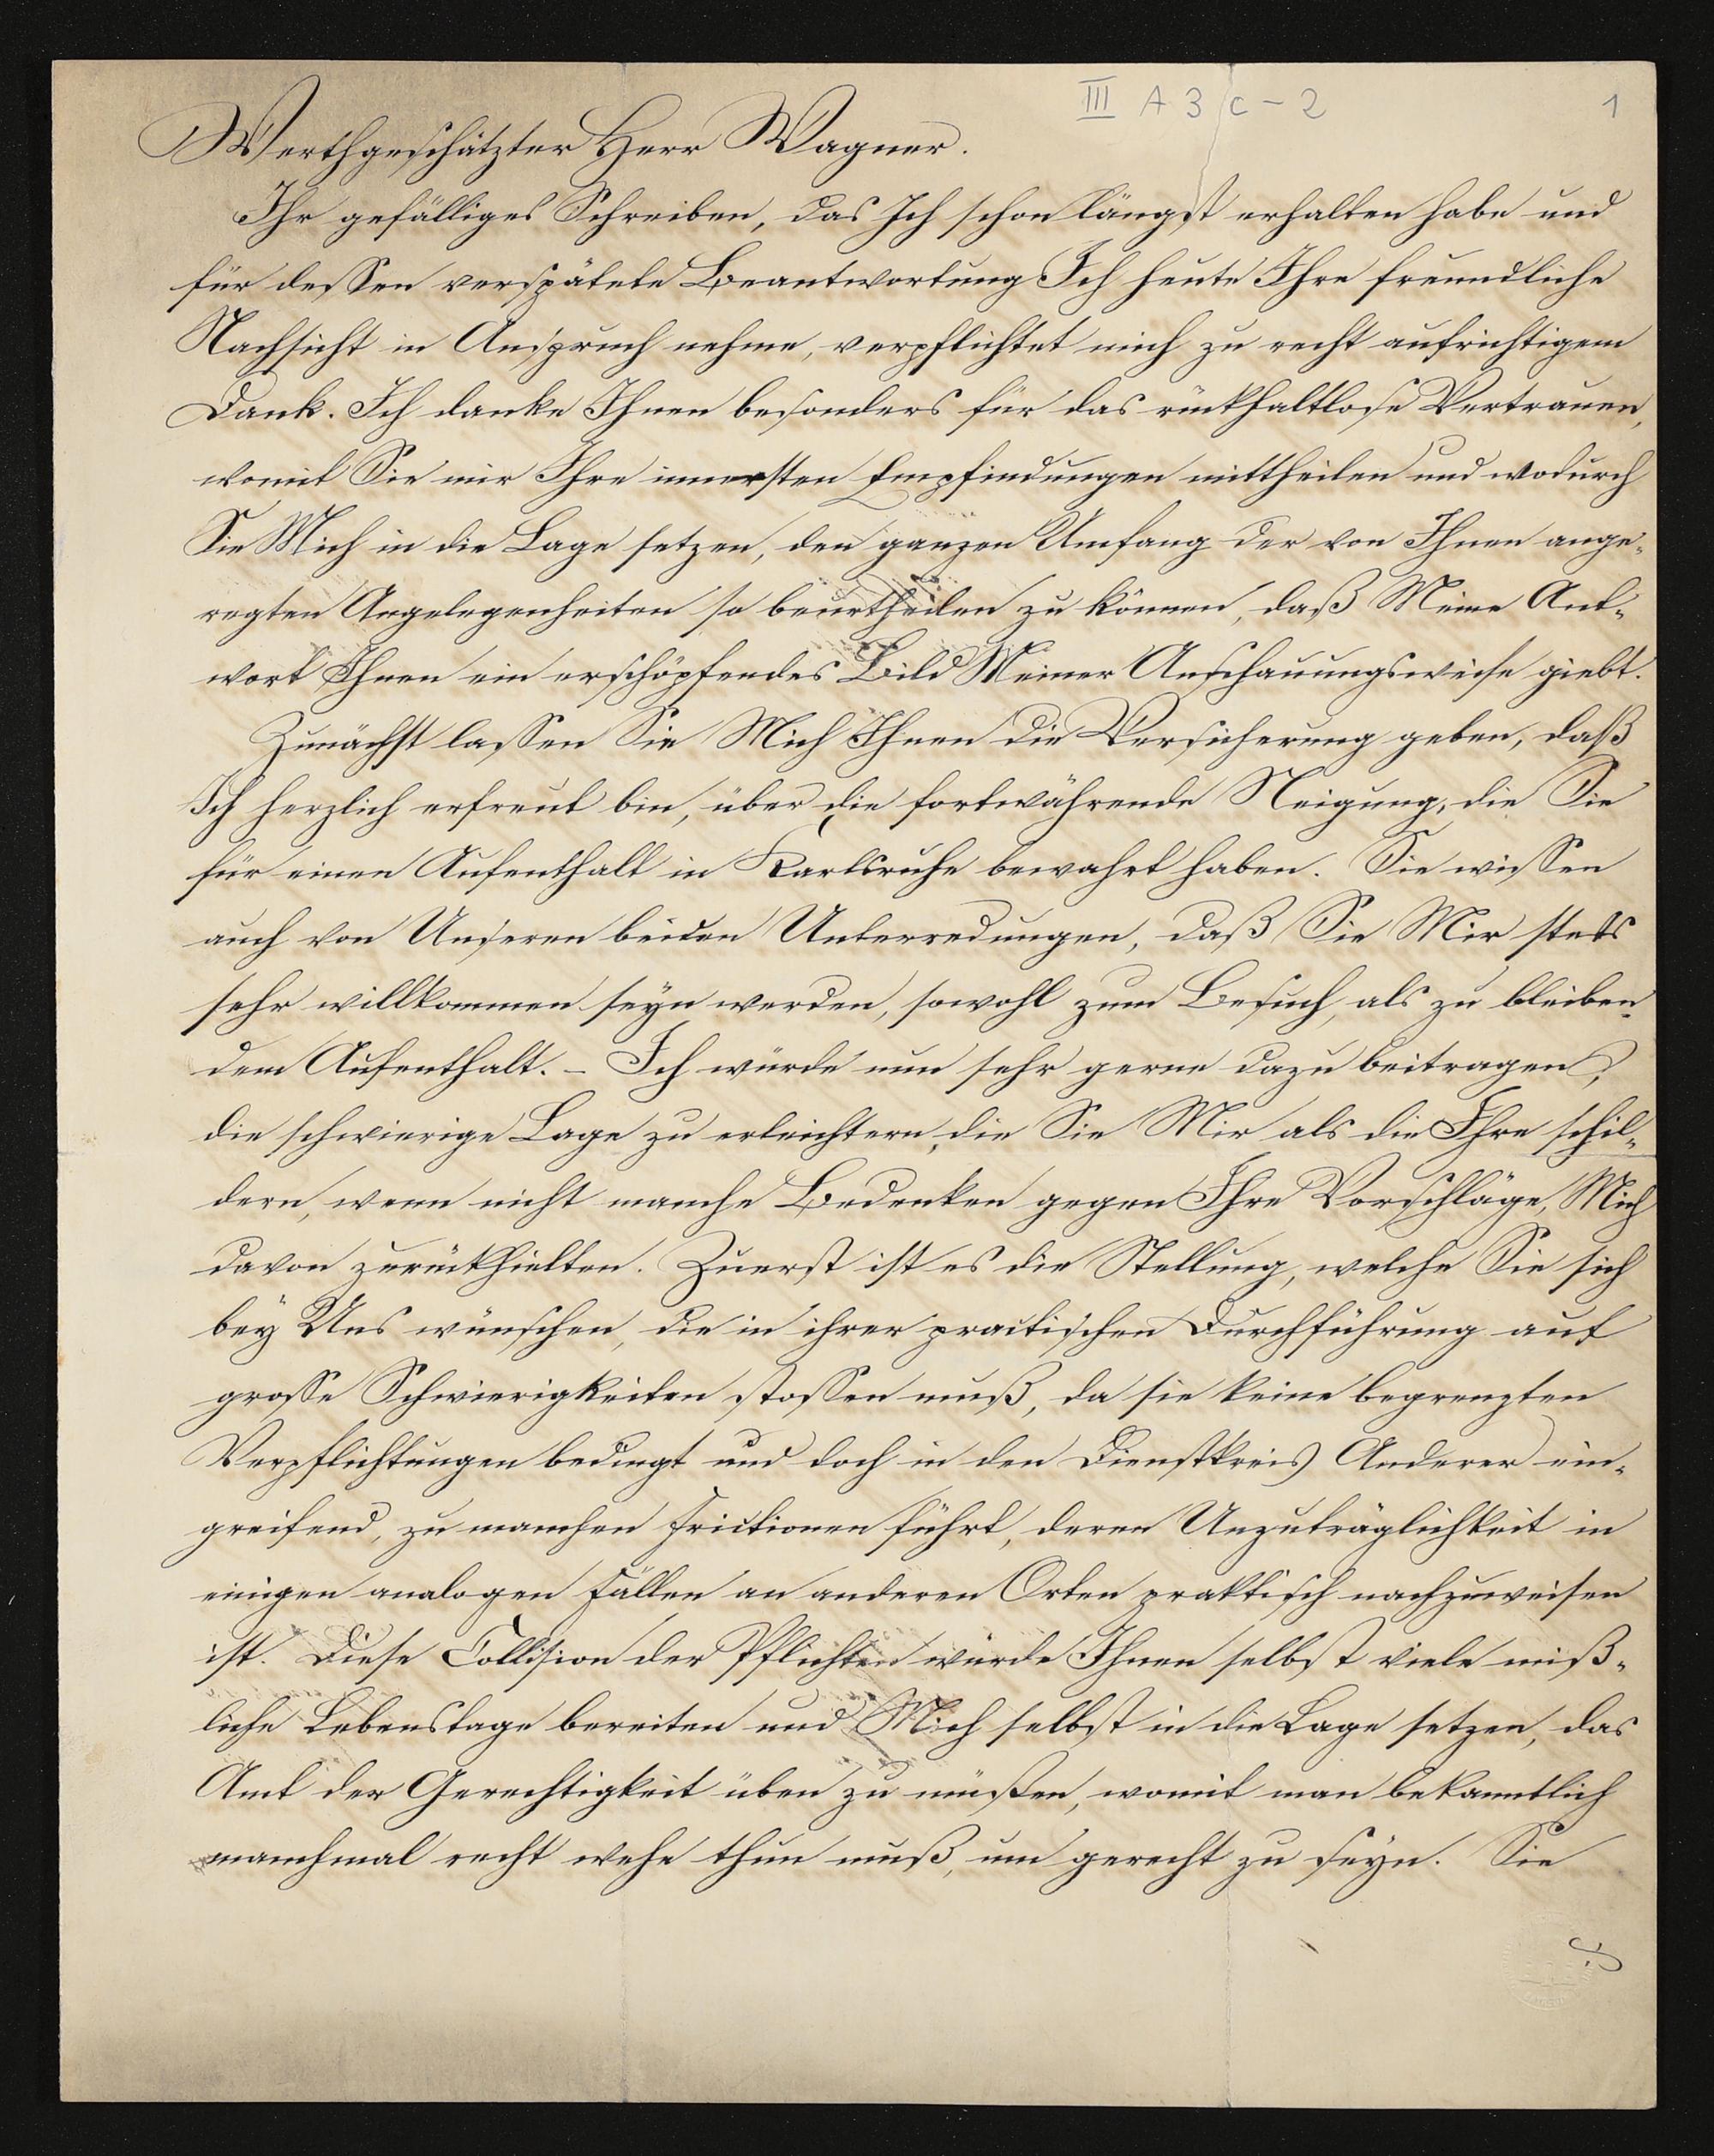 III A 3/c-2
1
Werthgeschätzter Herr Wagner.
Ihr gefälliges Schreiben, das Ich schon längst erhalten habe und
für dessen verspätete Beantwortung Ich heute Ihre freundliche
Nachsicht in Anspruch nehme, verpflichtet mich zu recht aufrichtigem
Dank. Ich danke Ihnen besonders für das rückhaltlose Vertrauen,
womit Sie mir Ihre innersten Empfindungen mittheilen und wodurch
Sie Mich in die Lage setzen, den ganzen Umfang der von Ihnen ange-
regten Angelegenheiten so beurtheilen zu können, daß Meine Ant-
wort Ihnen ein erschöpfendes Bild Meiner Anschauungsweise giebt.
Zunächst lassen Sie Mich Ihnen die Versicherung geben, daß
Ich herzlich erfreut bin, über die fortwährende Neigung, die Sie
für einen Aufenthalt in Karlsruhe bewahrt haben. Sie wissen
auch von Unseren beiden Unterredungen, daß Sie Mir stets
sehr willkommen seyn werden, sowohl zum Besuch, als zu bleiben-
dem Aufenthalt. – Ich würde nun sehr gerne dazu beitragen,
die schwierige Lage zu erleichtern, die Sie Mir als die Ihre schil-
dern, wenn nicht manche Bedenken gegen Ihre Vorschläge, Mich
davon zurückhielten. Zuerst ist es die Stellung, welche Sie sich
bey Uns wünschen, die in ihrer practischen Durchführung auf
grosse Schwierigkeiten stossen muß, da sie keine begrenzten
Verpflichtungen bedingt und doch in den Dienstkreis Anderer ein-
greifend, zu manchen Frictionen führt, deren Unzuträglichkeit in
einigen analogen Fällen an anderen Orten praktisch nachzuweisen
ist. Diese Collision der Pflichten würde Ihnen selbst viele miß-
liche Lebenstage bereiten und Mich selbst in die Lage setzen, das
Amt der Gerechtigkeit üben zu müßen, womit man bekanntlich
manchmal recht wehe thun muß, um gerecht zu seyn. Sie